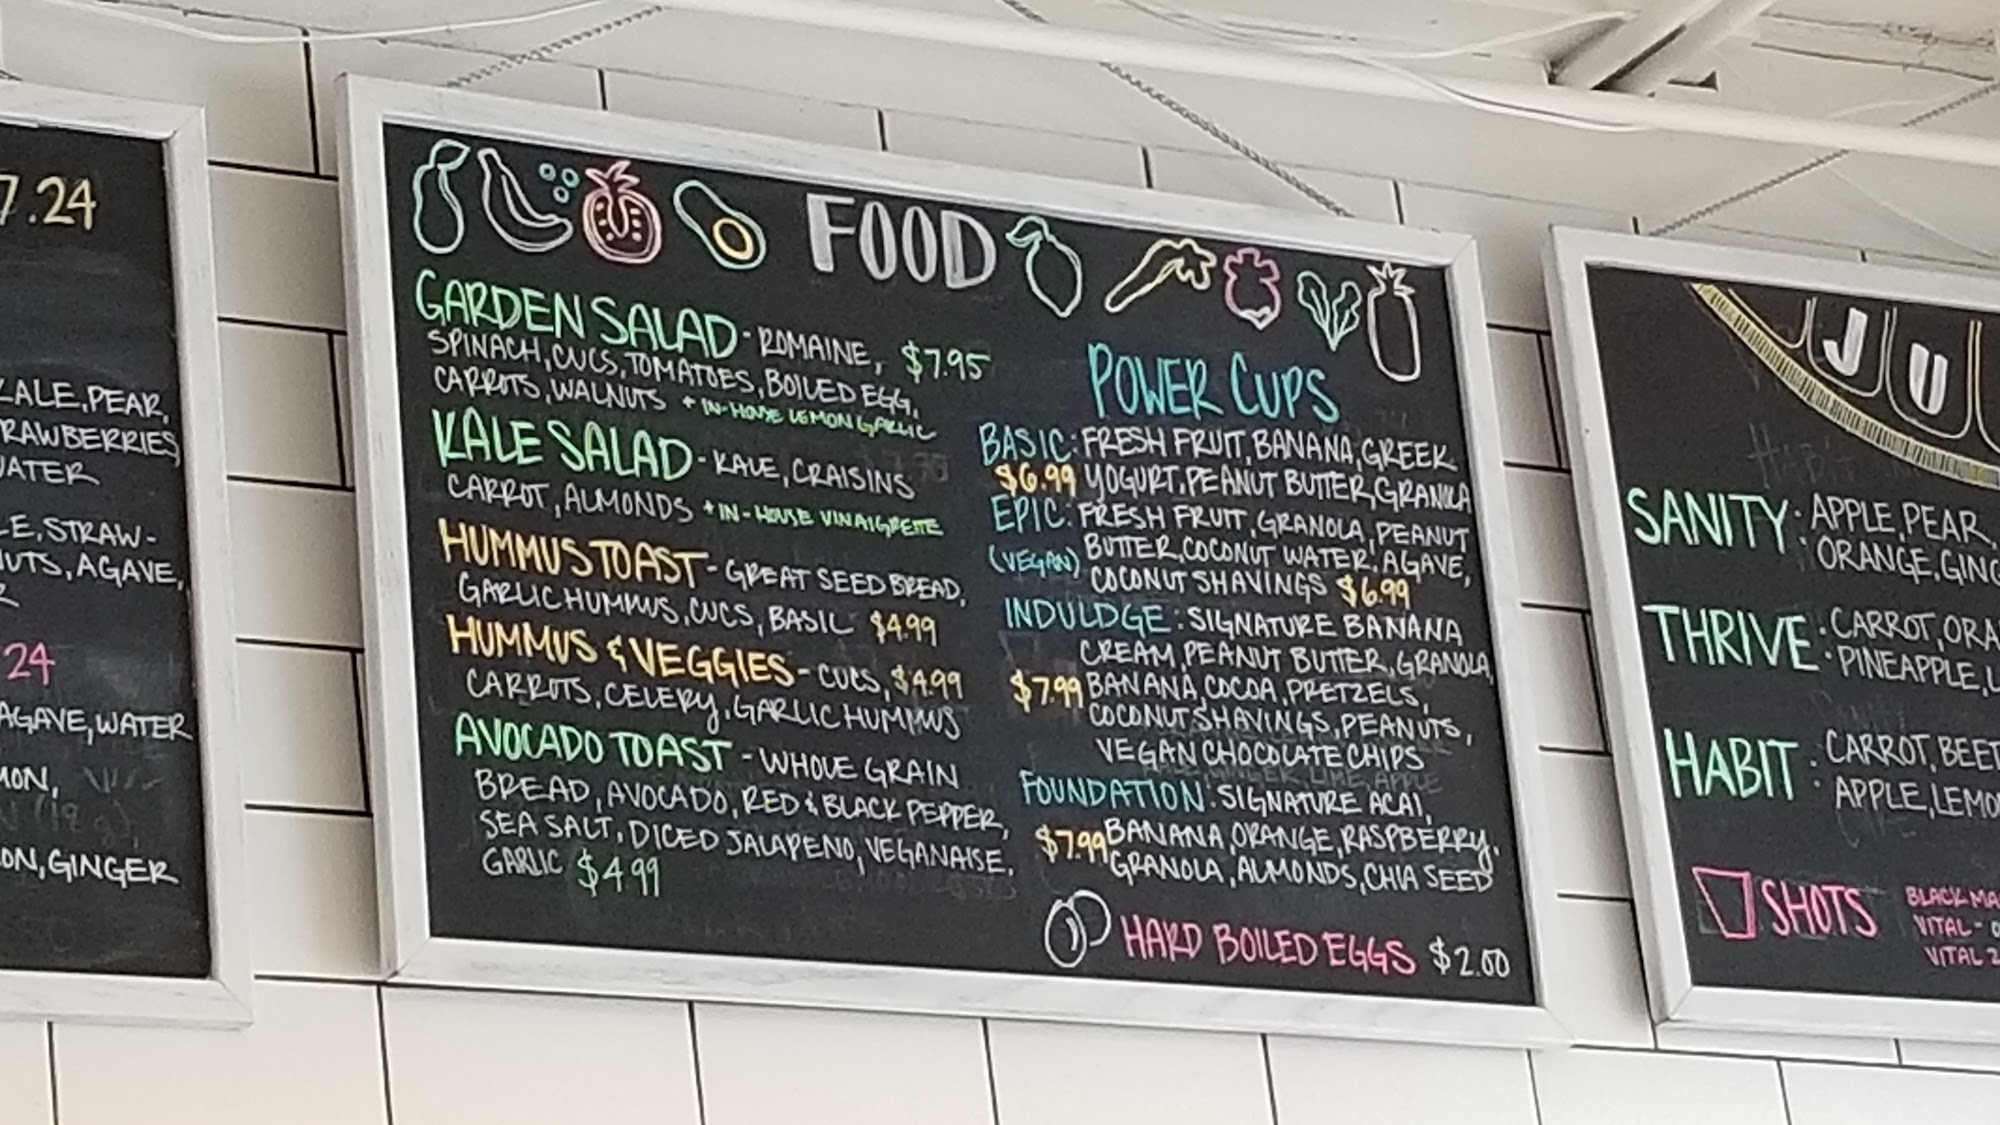 7.24
KALE, PEAR,
RAWBERRIES
WATER
LE, STRAW-
UTS, AGAVE,
24
AGAVE, WATER
MON,
ON, GINGER
FOOD
GARDEN SALAD - ROMAINE, $7.95
SPINACH, CUCS, TOMATOES, BOILED EGG,
CARROTS, WALNUTS + IN-HOUSE LEMON GARLIC
KALE SALAD - KALE, CRAISINS
CARROT, ALMONDS + IN-HOUSE VINAIGRETTE
HUMMUS TOAST - GREAT SEED BREAD,
GARLIC HUMMUS, CUCS, BASIL $4.99
HUMMUS & VEGGIES - CUCS, $4.99
CARROTS, CELERY, GARLIC HUMMUS
AVOCADO TOAST - WHOLE GRAIN
BREAD, AVOCADO, RED & BLACK PEPPER,
SEA SALT, DICED JALAPENO, VEGANAISE,
GARLIC $4.99
POWER CUPS
BASIC: FRESH FRUIT, BANANA, GREEK
$6.99 YOGURT, PEANUT BUTTER, GRANOLA
EPIC: FRESH FRUIT, GRANOLA, PEANUT
(VEGAN) BUTTER, COCONUT WATER, AGAVE,
COCONUT SHAVINGS $6.99
INDULDGE: SIGNATURE BANANA
CREAM, PEANUT BUTTER, GRANOLA,
$7.99 BANANA, COCOA, PRETZELS,
COCONUT SHAVINGS, PEANUTS,
VEGAN CHOCOLATE CHIPS
FOUNDATION: SIGNATURE ACAI,
$7.99 BANANA, ORANGE, RASPBERRY,
GRANOLA, ALMONDS, CHIA SEED
HARD BOILED EGGS $2.00
JU
SANITY: APPLE, PEAR,
ORANGE, GING
THRIVE: CARROT, ORA
PINEAPPLE, L
HABIT: CARROT, BEET
APPLE, LEMO
SHOTS
BLACK MA
VITAL - O
VITAL 2